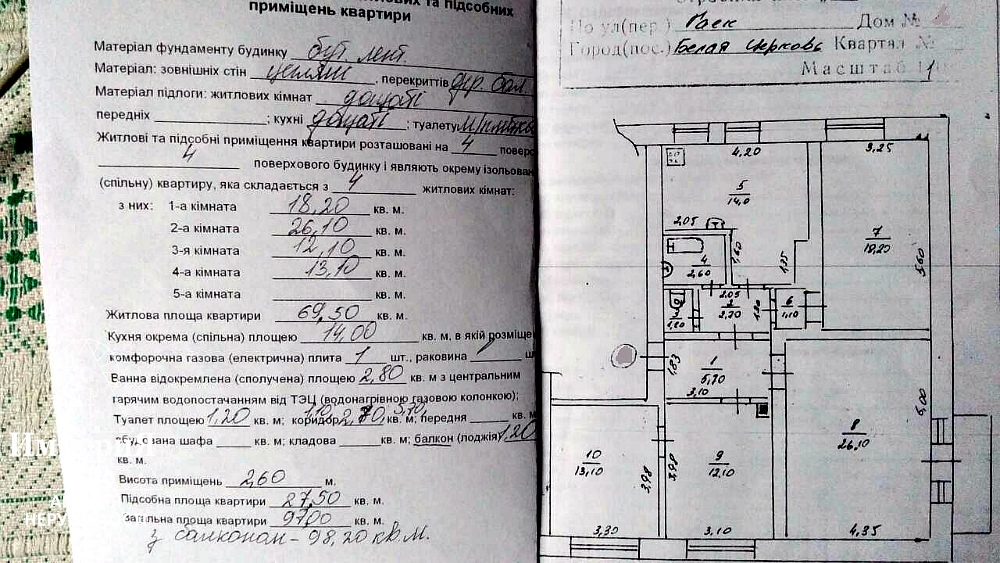 приміщень квартири
Матеріал фундаменту будинку бут. лент.
Матеріал: зовнішніх стін , перекриттів дер. бал.
Матеріал підлоги: житлових кімнат дощаті
передніх ; кухні дощаті ; туалету
Житлові та підсобні приміщення квартири розташовані на 4
4 поверхового будинку і являють окрему
(спільну) квартиру, яка складається з 4 житлових кімнат:
з них: 1-а кімната 18,20 кв. м.
2-а кімната 26,10 кв. м.
3-я кімната 12,10 кв. м.
4-а кімната 13,10 кв. м.
5-а кімната кв. м.
Житлова площа квартири 69,50 кв. м.
Кухня окрема (спільна) площею 14,00 кв. м, в якій
комфорочна газова (електрична) плита 1 шт., раковина
Ванна відокремлена (сполучена) площею 2,80 кв. м з центральним
гарячим водопостачанням від ТЭЦ (водонагрівною газовою колонкою);
Туалет площею 1,20 кв. м; коридор 1,10 5,70 кв. м; передня кв. м
шафа кв. м; кладова кв. м; балкон (лоджія) 1,20
кв. м.
Висота приміщень 2,60 м.
Підсобна площа квартири 27,50 кв. м.
загальна площа квартири 97,00 кв. м.
з балконом - 98,20 кв. м.
По ул(пер.) Дом №
Город(пос.) Белая Церковь Квартал №
Масштаб 1
4,20
3,25
5
14,0
2,05
7
18,20
1,60
1,35
5,60
4
2,60
2,05
3
1,20
2
2,70
1,30
6
1,10
1,83
1
5,70
3,10
6,00
8
26,10
10
13,10
3,98
3,98
9
12,10
3,30
3,10
4,35